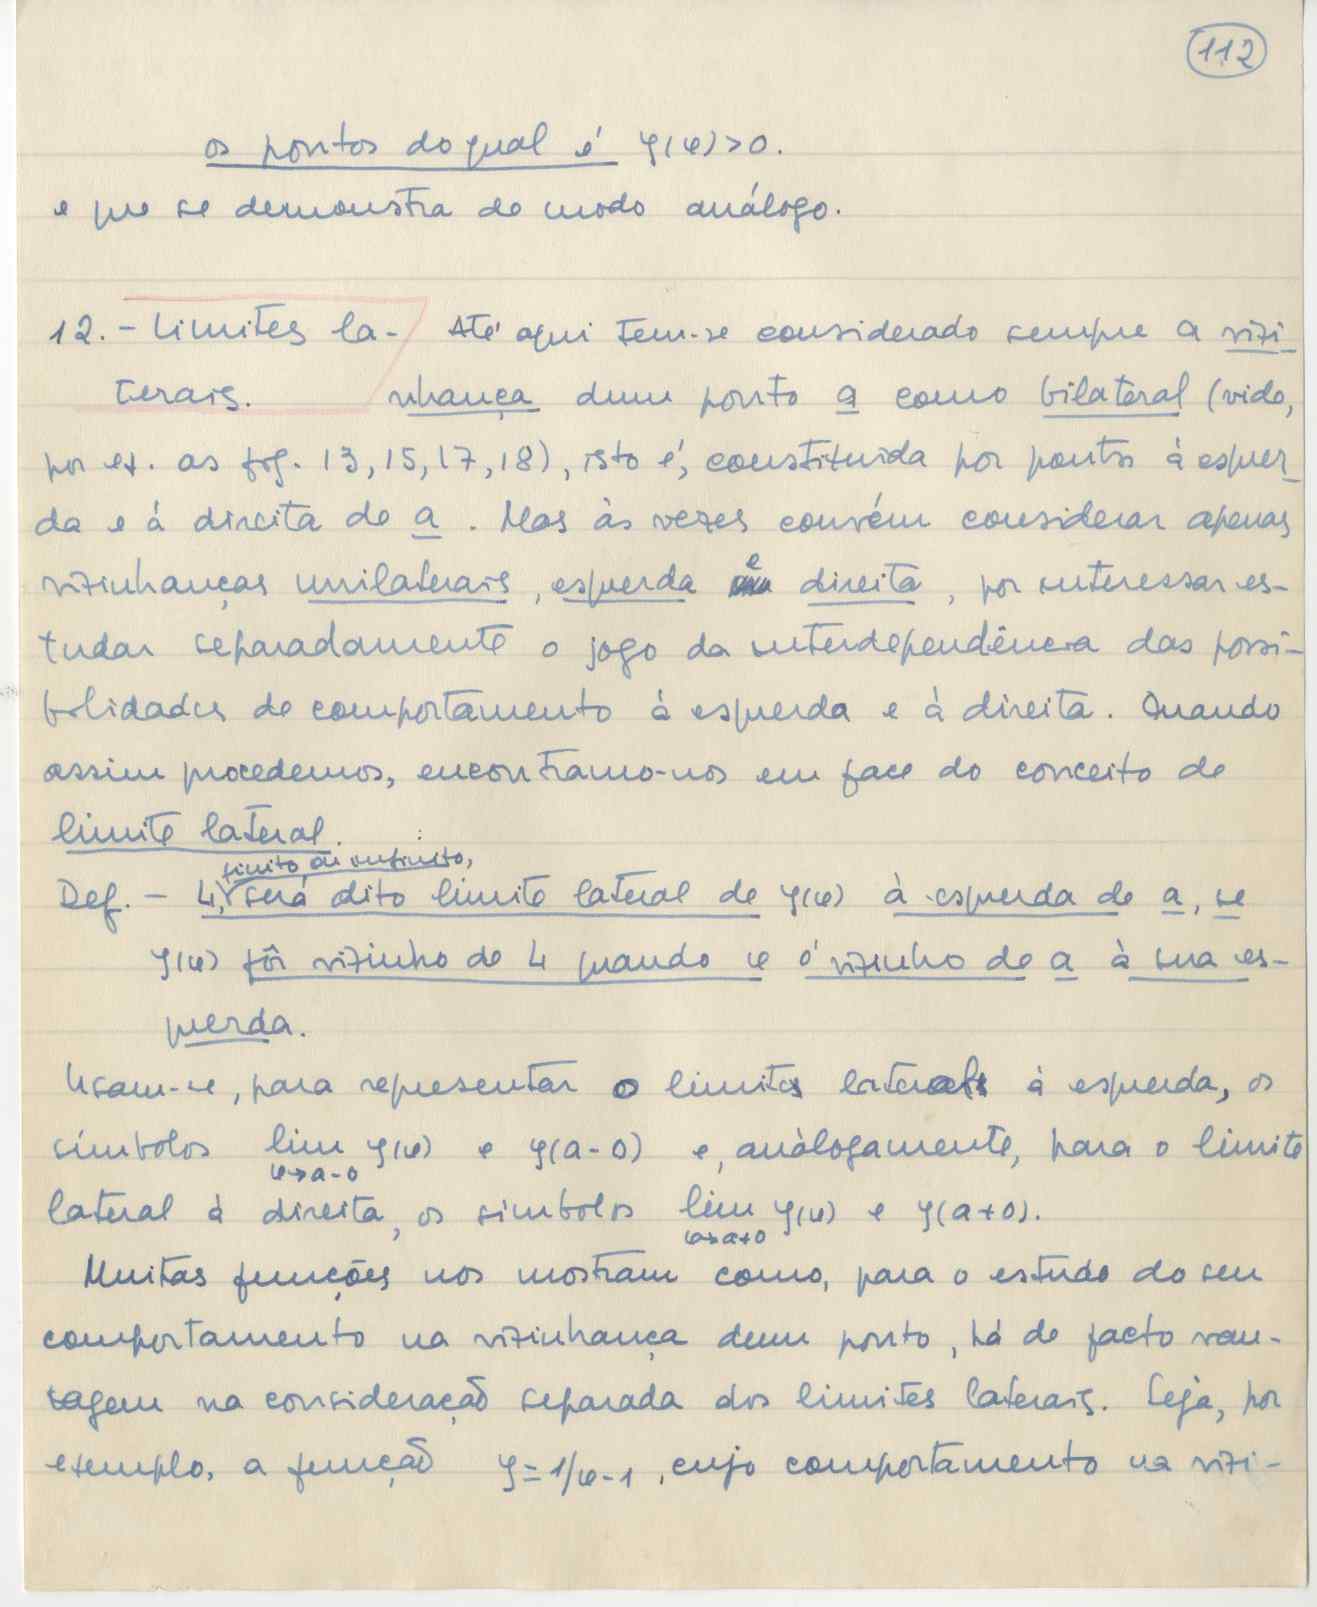 112
os pontos do qual é y(x)>0.
e que se demonstra de modo análogo.
12. - Limites la- Até aqui tem-se considerado sempre a vizi-
terais. nhança dum ponto a como bilateral (vide,
por ex. as fig. 13, 15, 17, 18), isto é, constituida por pontos à esquer-
da e à direita de a. Mas às vezes convém considerar apenas
vizinhanças unilaterais, esquerda e direita, por interessar es-
tudar separadamente o jogo da interdependência das possi-
bilidades de comportamento à esquerda e à direita. Quando
assim procedemos, encontramo-nos em face do conceito de
limite lateral.
finito ou infinito,
Def. - L, será dito limite lateral de y(x) à esquerda de a, se
y(x) fôr vizinho de L quando x é vizinho de a à sua es-
querda.
Usam-se, para representar o limite lateral à esquerda, os
símbolos lim y(x) e y(a-0) e, anàlogamente, para o limite
x→a-0
lateral à direita, os simbolos lim y(x) e y(a+0).
x→a+0
Muitas funções nos mostram como, para o estudo do seu
comportamento na vizinhança dum ponto, há de facto van-
tagem na consideração separada dos limites laterais. Seja, por
exemplo, a função y=1/x-1, cujo comportamento na vizi-